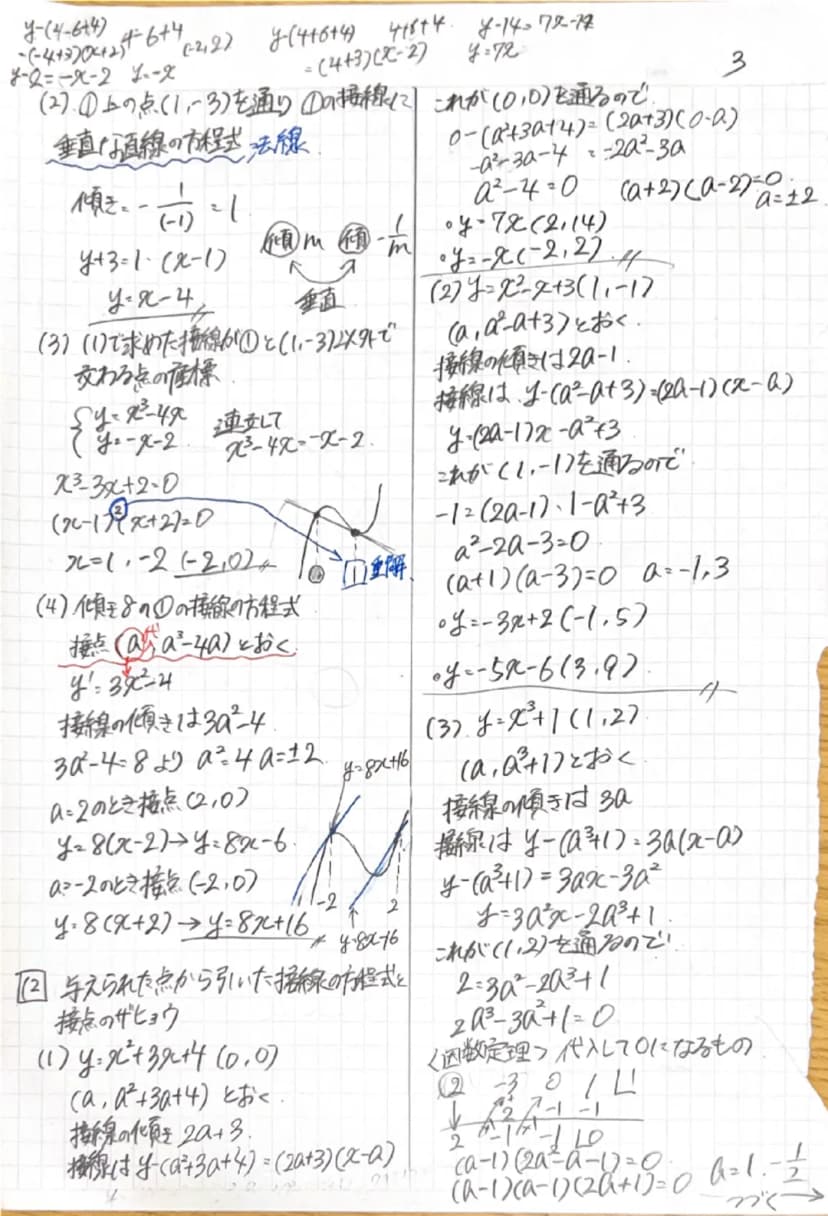 y-(4-6+4)
4-6+4
=(-4+3)(x+2)
(-2,2)
y-2=-x-2 y=-x
y-(4+6+4) 4+6+4
=(4+3)(x-2)
y-14=7x-14
y=7x
3
(2) ①上の点(1,-3)を通り①の接線に
垂直な直線の方程式 法線
傾き=-1/(-1)=1
傾 m 傾 -1/m
垂直
y+3=1・(x-1)
y=x-4
(3) (1)で求めた接線が①と(1,-3)以外で
交わる点の座標
{y=x³-4x
{y=-x-2
連立して
x³-4x=-x-2
x³-3x+2=0
(x-1)²(x+2)=0
x=1,-2 (-2,0)
1 重解
(4) 傾き8の①の接線の方程式
接点(a, a³-4a)とおく
y'=3x²-4
接線の傾きは3a²-4
3a²-4=8より a²=4 a=±2
a=2のとき接点(2,0)
y=8(x-2)→y=8x-6
a=-2のとき接点(-2,0)
y=8(x+2)→y=8x+16
y=8x+16
-2 2
y=8x-16
12 与えられた点から引いた接線の方程式と
接点のザヒョウ
(1) y=x²+3x+4 (0,0)
(a, a²+3a+4) とおく
接線の傾き 2a+3
接線は y-(a²+3a+4)=(2a+3)(x-a)
これが(0,0)を通るので
0-(a²+3a+4)=(2a+3)(0-a)
-a²-3a-4=-2a²-3a
a²-4=0 (a+2)(a-2)=0
a=±2
・y=7x(2,14)
・y=-x(-2,2)
(2) y=x²-x+3(1,-1)
(a, a²-a+3)とおく
接線の傾きは2a-1
接線は y-(a²-a+3)=(2a-1)(x-a)
y=(2a-1)x-a²+3
これが(1,-1)を通るので
-1=(2a-1)・1-a²+3
a²-2a-3=0
(a+1)(a-3)=0 a=-1,3
・y=-3x+2(-1,5)
・y=-5x-6(3,9)
(3) y=x³+1(1,2)
(a, a³+1)とおく
接線の傾きは 3a
接線は y-(a³+1)=3a(x-a)
y-(a³+1)=3ax-3a²
y=3a²x-2a³+1
これが(1,2)を通るので
2=3a²-2a³+1
2a³-3a²+1=0
〈因数定理〉代入して0になるもの
2 -3 0 1 1
2 -1 -1
2 -1 -1 0
(a-1)(2a²-a-1)=0
(a-1)(a-1)(2a+1)=0 a=1,-1/2
つづく→